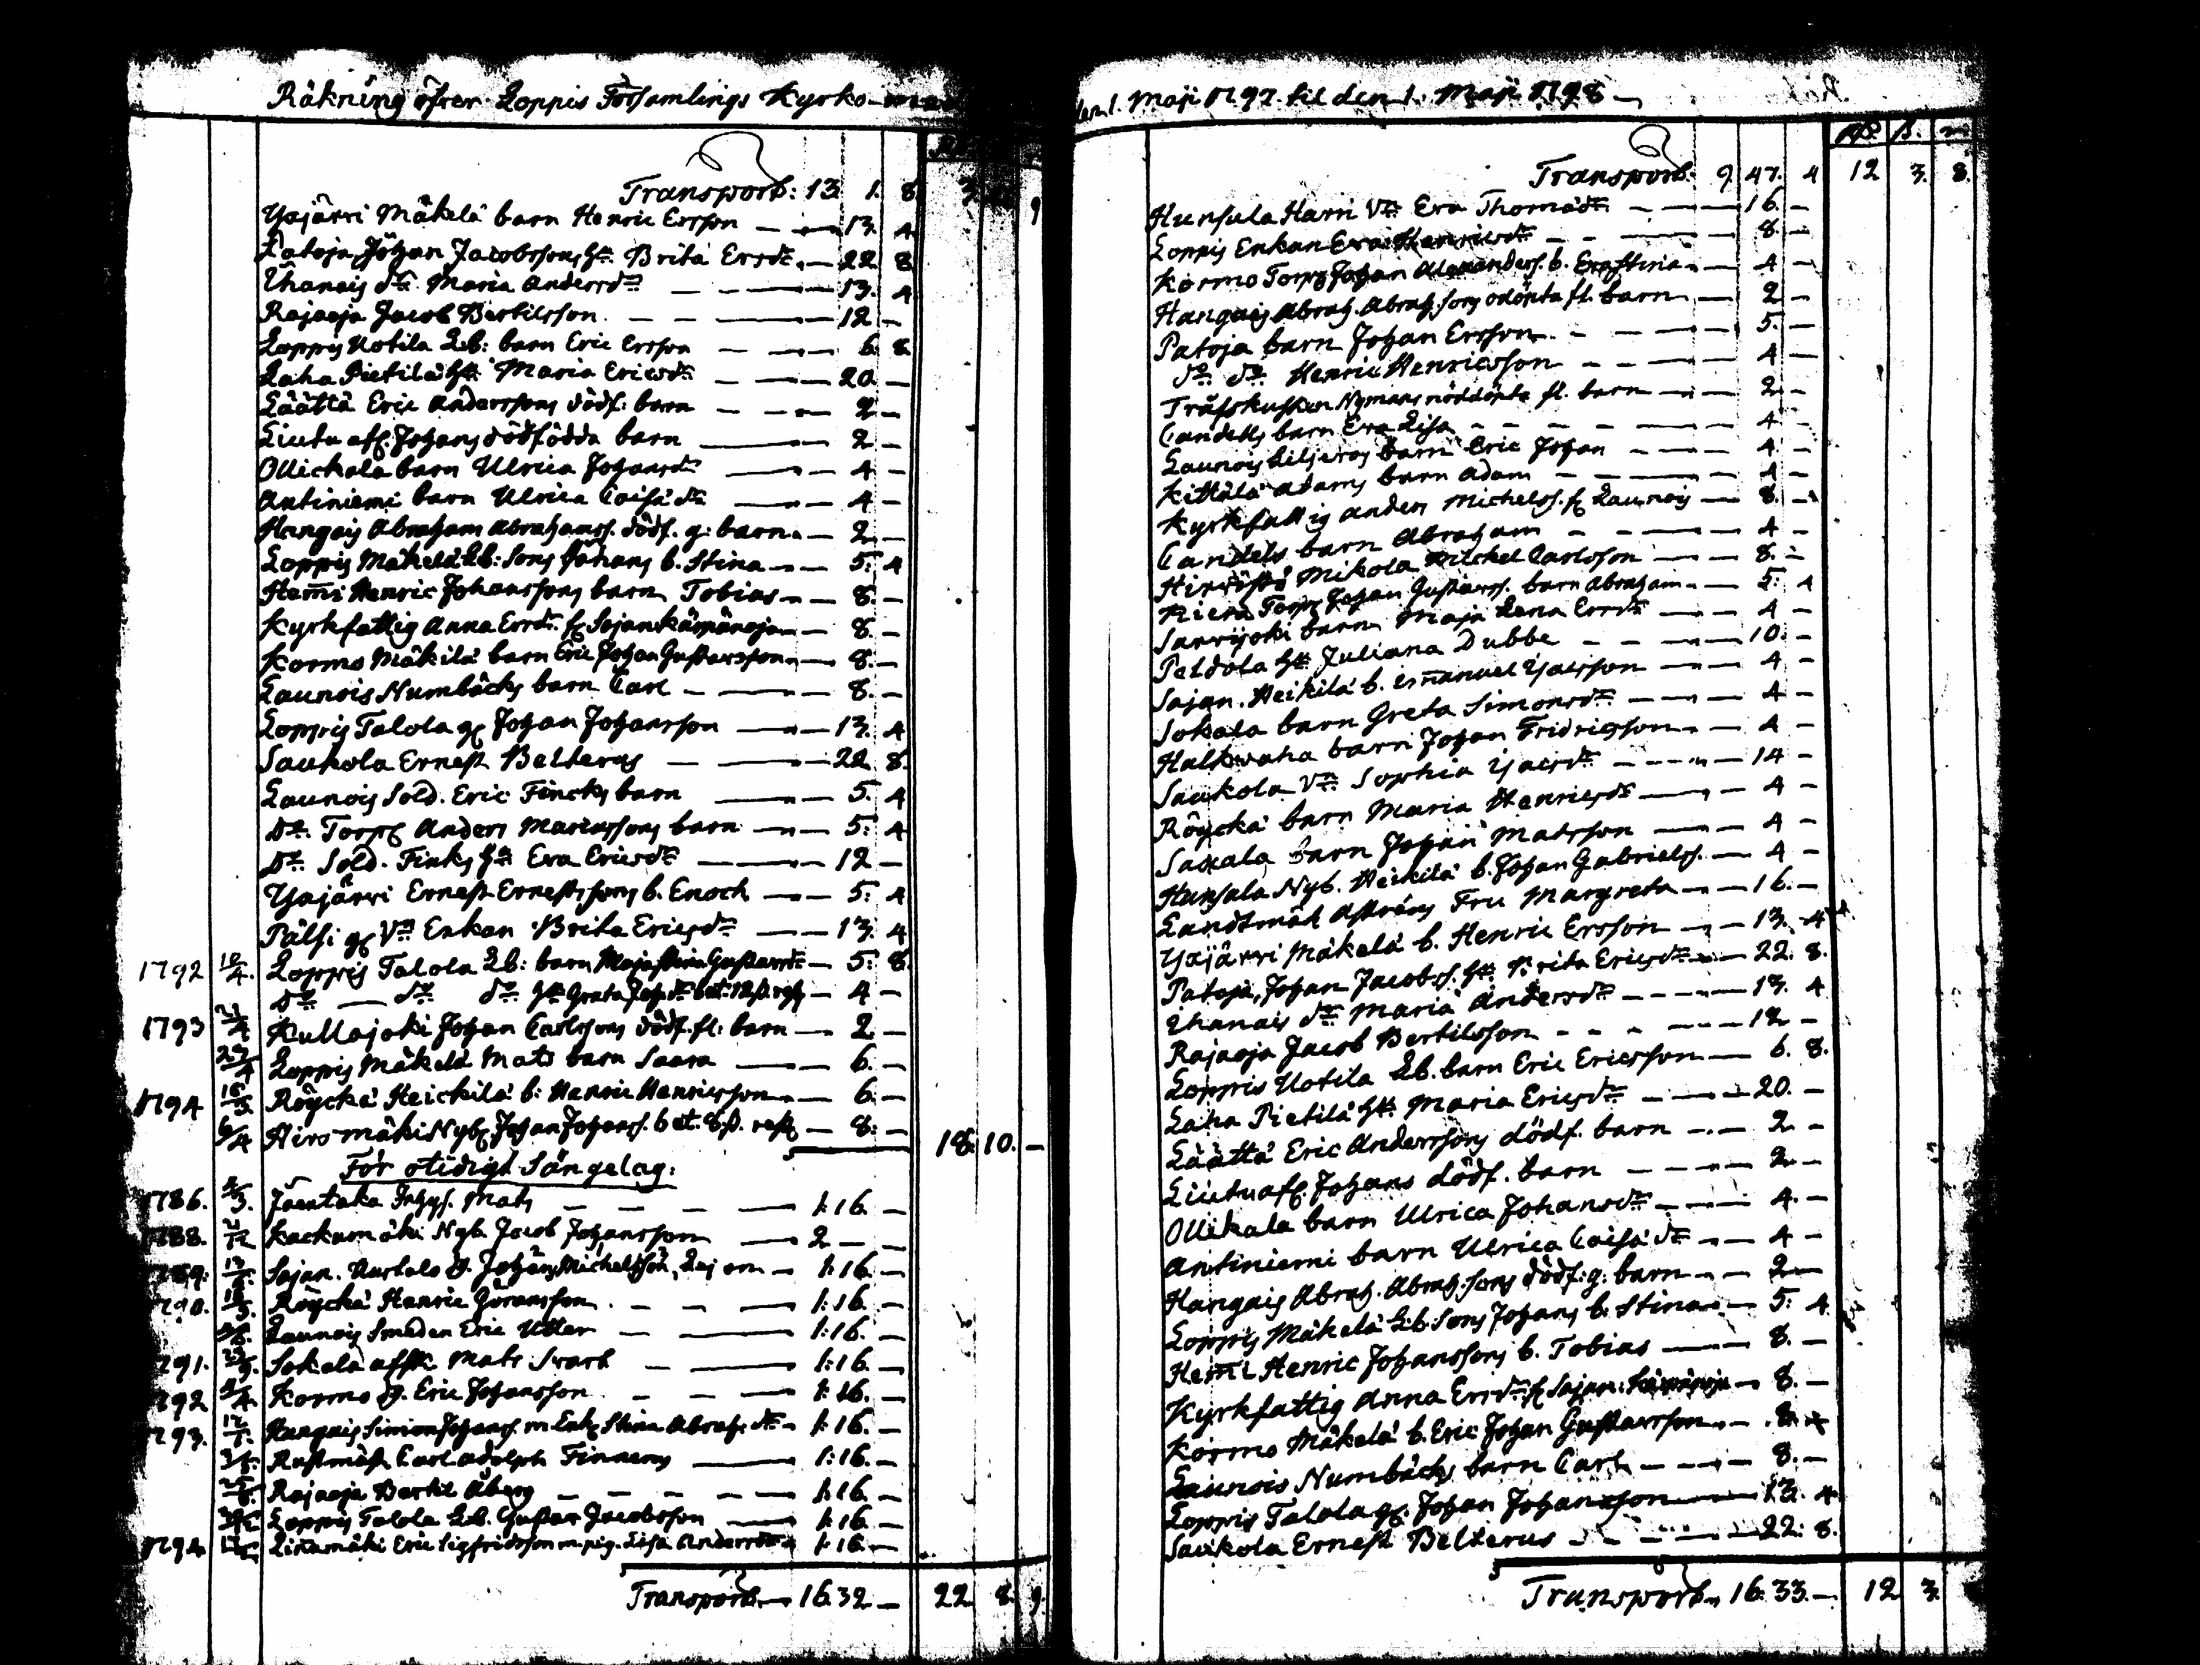 Räkning öfver Loppis Församlings Kyrko
Transport: 13. 1. 8 3. 9
Yxjärvi Mäkelä barn Henric Ersson — 13. 4
Patoja Johan Jacobssons hu Brita Ersdr — 22 8
Uhanais do Maria Andersdr — 13. 4
Rajaoja Jacob Bertilsson — 12 —
Loppis Uotila Lb: barn Eric Ersson — 6 8
Laha Pietilä hu Maria Ericsdr — 20 —
Läättä Eric Anderssons dödf: barn — 2 —
Liutu Johans dödfödda barn — 2 —
Ollickala barn Ulrica Johansdr — 4 —
Antiniemi barn Ulrica Caisa dr — 4 —
Hangais Abraham Abrahamss. dödf. g: barn — 2 —
Loppis Mäkelä Lb: Sons Johans b. Stina — 5: 4
Hemi Henric Johanssons barn Tobias — 8 —
Kyrkfattig Anna Ersdr. Sajan — 8. —
Kormo Mäkilä barn Eric Johan Gustavsson — 8. —
Launois Numbäcks barn Carl — 8. —
Loppis Talola Johan Johansson — 13. 4
Saukola Ernest Belterus — 22 8.
Launois Sold. Eric Fincks barn — 5. 4
Do Torp Anders barn — 5: 4
Do Sold. Finks hu Eva Ericsdr — 12 —
Yxjärvi Ernest Ernestssons b. Enoch — 5: 4
Pälsi Enkan Brita Ericsdr — 13. 4
1792 10/4. Loppis Talola Lb: barn Maja Stina Gustavsdr — 5: 8
Do — do do hu Greta — 4 —
1793 Kullajoki Johan Carlssons dödf. fl: barn — 2 —
Loppis Mäkelä Mats barn Saara — 6. —
1794 Röyckä Heickilä b: Henric Henricsson — 6 —
6/4 Hirsmäki Nyb Johan Johanss. bet. 8 — 8: — 18. 10. —
För otidigt Sängelag:
1786. Jaentaka Mats — 1:16 —
1788. Kackumäki Nyb. Jacob Johansson — 2 — —
1789. Sajan. Johan Michelsson — 1:16 —
1790. Röyckä Henric Göransson — 1:16 —
Launois Smeden Eric Utter — 1:16. —
1791. Sokala Mats Svart — 1:16. —
1792 Kormo Eric Johansson — 1:16. —
1793. Hangais Simon Johanss. m Enk. Stina — 1:16. —
Rustmäst Carl Adolph Finnerus — 1:16. —
Rajaoja Bertil Åberg — 1:16. —
Loppis Talola Lb. Gustav Jacobsson — 1:16. —
1794 Linamäki Eric Sigfridsson m pig. Lisa Andersdr — 1:16. —
Transport — 16.32 — 22 8. 9.
1. Maji 1797 til den 1. Maji 1798
Transport. 9. 47. 4 12 3. 8.
Hunsala Harri Eva Thomasdr — 16. —
Loppis Enkan Eva Henricsdr — 8. —
Kormo Torp Johan Alexanders. b. Ernstina — 4 —
Hangais Abrah. Abrah.sons odöpta fl. barn — 2 —
Patoja barn Johan Ersson — 5. —
do do Henric Henricsson — 4 —
Nymans nöddöpta fl. barn — 2 —
Candells barn Eva Lisa — 4 —
Launois barn Eric Johan — 4 —
Kittälä Adams barn Adam — 4 —
Kyrkfattig Anders Michelss. Launois — 8. —
Candels barn Abraham — 4 —
Mikola Michel Carlsson — 8. —
Torp Johan Gustavss. barn Abraham — 5: 4
barn Maja Lena Ersdr — 4 —
Peldola hu Juliana Dubbe — 10. —
Sajan. Heikilä b. Emanuel — 4 —
Sokala barn Greta Simonsdr — 4 —
Halkivaha barn Johan Fridricsson — 4 —
Saukola Sophia — 14 —
Röyckä barn Maria Henricsdr — 4 —
Saxala barn Johan Matsson — 4 —
Hunsala Nyb. Heikilä b. Johan Gabrielss. — 4 —
Fru Margreta — 16. —
Yxjärvi Mäkelä b. Henric Ersson — 13. 4
Patoja Johan Jacobss. hu Brita Ericsdr — 22. 8.
Uhanais do Maria Andersdr — 13. 4
Rajaoja Jacob Bertilsson — 12 —
Loppis Uotila Lb. barn Eric Ericsson — 6. 8.
Laha Pietilä hu Maria Ericsdr — 20. —
Läättä Eric Anderssons dödf. barn — 2 —
Liutu Johans dödf. barn — 2 —
Ollikala barn Ulrica Johansdr — 4. —
Antiniemi barn Ulrica Caisa dr — 4 —
Hangais Abrah. Abrah.sons dödf: g: barn — 2 —
Loppis Mäkelä Lb. Sons Johans b. Stina — 5: 4
Hemi Henric Johanssons b. Tobias — 8. —
Kyrkfattig Anna Ersdr Sajan — 8. —
Kormo Mäkelä b. Eric Johan Gustavsson — 8. —
Launois Numbäcks barn Carl — 8. —
Loppis Talola Johan Johansson — 13. 4
Saukola Ernest Belterus — 22: 8.
Transport — 16. 33. — 12 3.